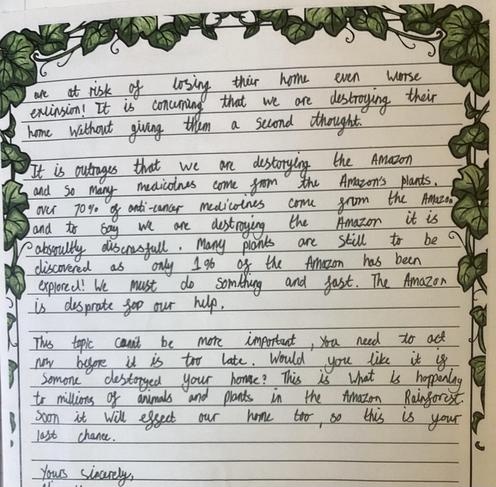 are at risk of losing thier home even worse
exlinsion! It is concerning that we are destroying their
home without giving them a second thought.
It is outrages that we are destorying the Amazon
and so many medicotnes come from the Amazon's plants.
over 70% of anti-cancer medicotnes come from the Amazon
and to say we are destroying the Amazon it is
absoultly discrasfull. Many plants are still to be
discovered as only 1% of the Amazon has been
explored! We must do somthing and fast. The Amazon
is desprate for our help.
This topic can't be more important, you need to act
now before it is too late. Would you like it if
somone destoryed your home? This is what is happening
to millions of animals and plants in the Amazon Rainforest.
Soon it will effect our home too, so this is your
last chance.
Yours sincerely,